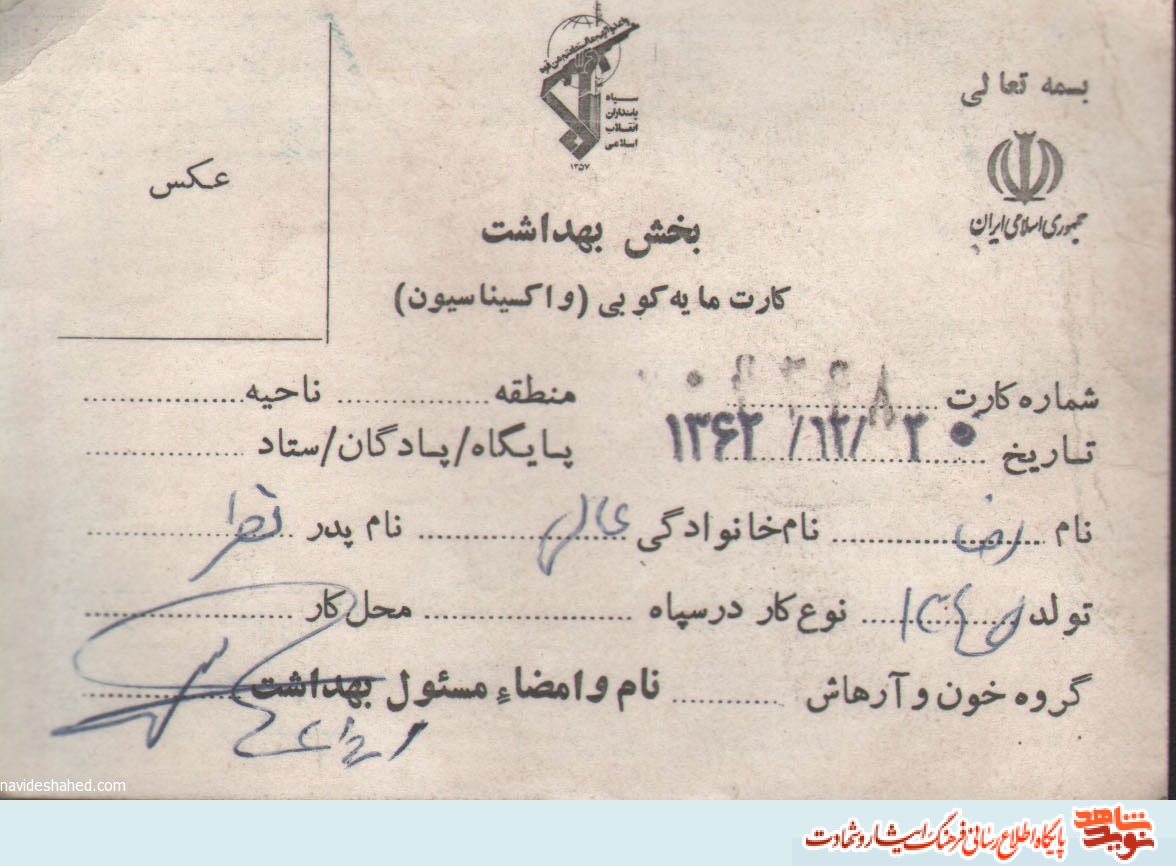 بسمه تعالی
جمهوری اسلامی ایران
سپاه
پاسداران
انقلاب
اسلامی
۱۳۵۷
عکس
بخش بهداشت
کارت مایه کوبی (واکسیناسیون)
شماره کارت منطقه ناحیه
تاریخ ۲۰ /۱۲/ ۱۳۶۲ پایگاه/پادگان/ستاد
نام رضا نام خانوادگی نام پدر
تولد نوع کار در سپاه محل کار
گروه خون و آرهاش نام و امضاء مسئول بهداشت
navideshahed.com
نوید شاهد
پایگاه اطلاع رسانی فرهنگ ایثار و شهادت